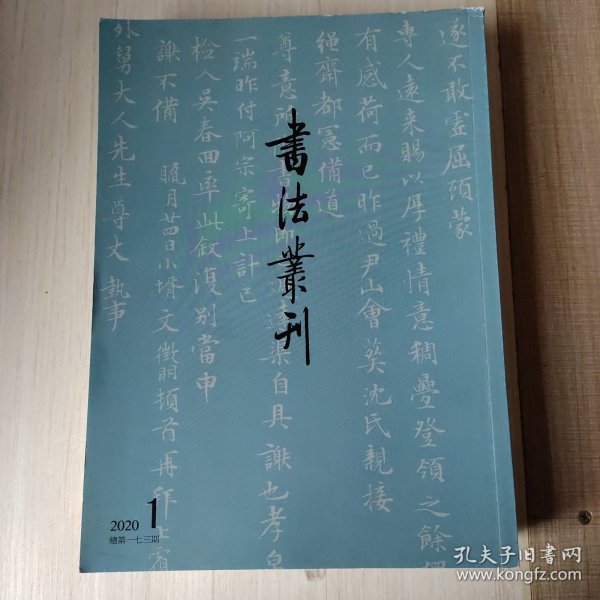 書法叢刊
遂不敢虚屈頒蒙
專人遠来賜以厚禮情意稠疊登領之餘
有感荷而已昨過尹山會奠沈氏親接
繩齋都憲備道
尊意所
渠自具謝也孝
一端昨付阿宗寄上計已
檢入吳春回率此敘復别當申
謝不備
臘月廿四日小壻文徵明頓首再拜上
外舅大人先生尊丈執事
2020 1
總第一七三期
孔夫子旧书网
www.kongfz.com